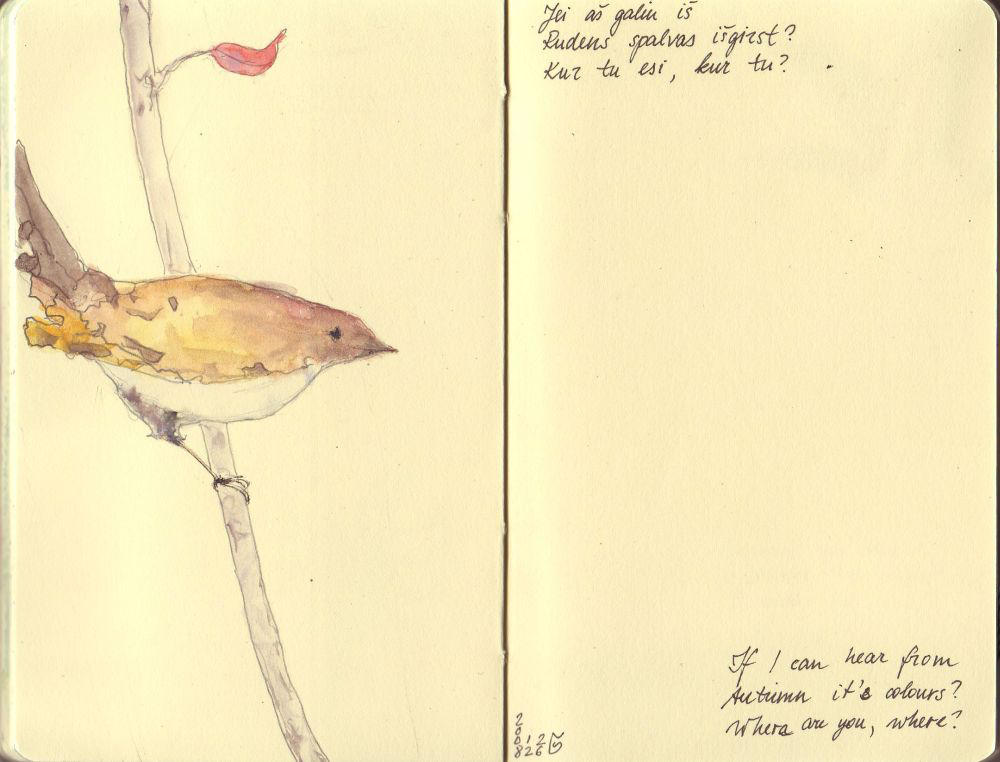 Jei aš galiu iš
Rudens spalvas išgirst?
Kur tu esi, kur tu?
If I can hear from
Autumn it's colours?
Where are you, where?
2
0
0 1 2
8 2 6